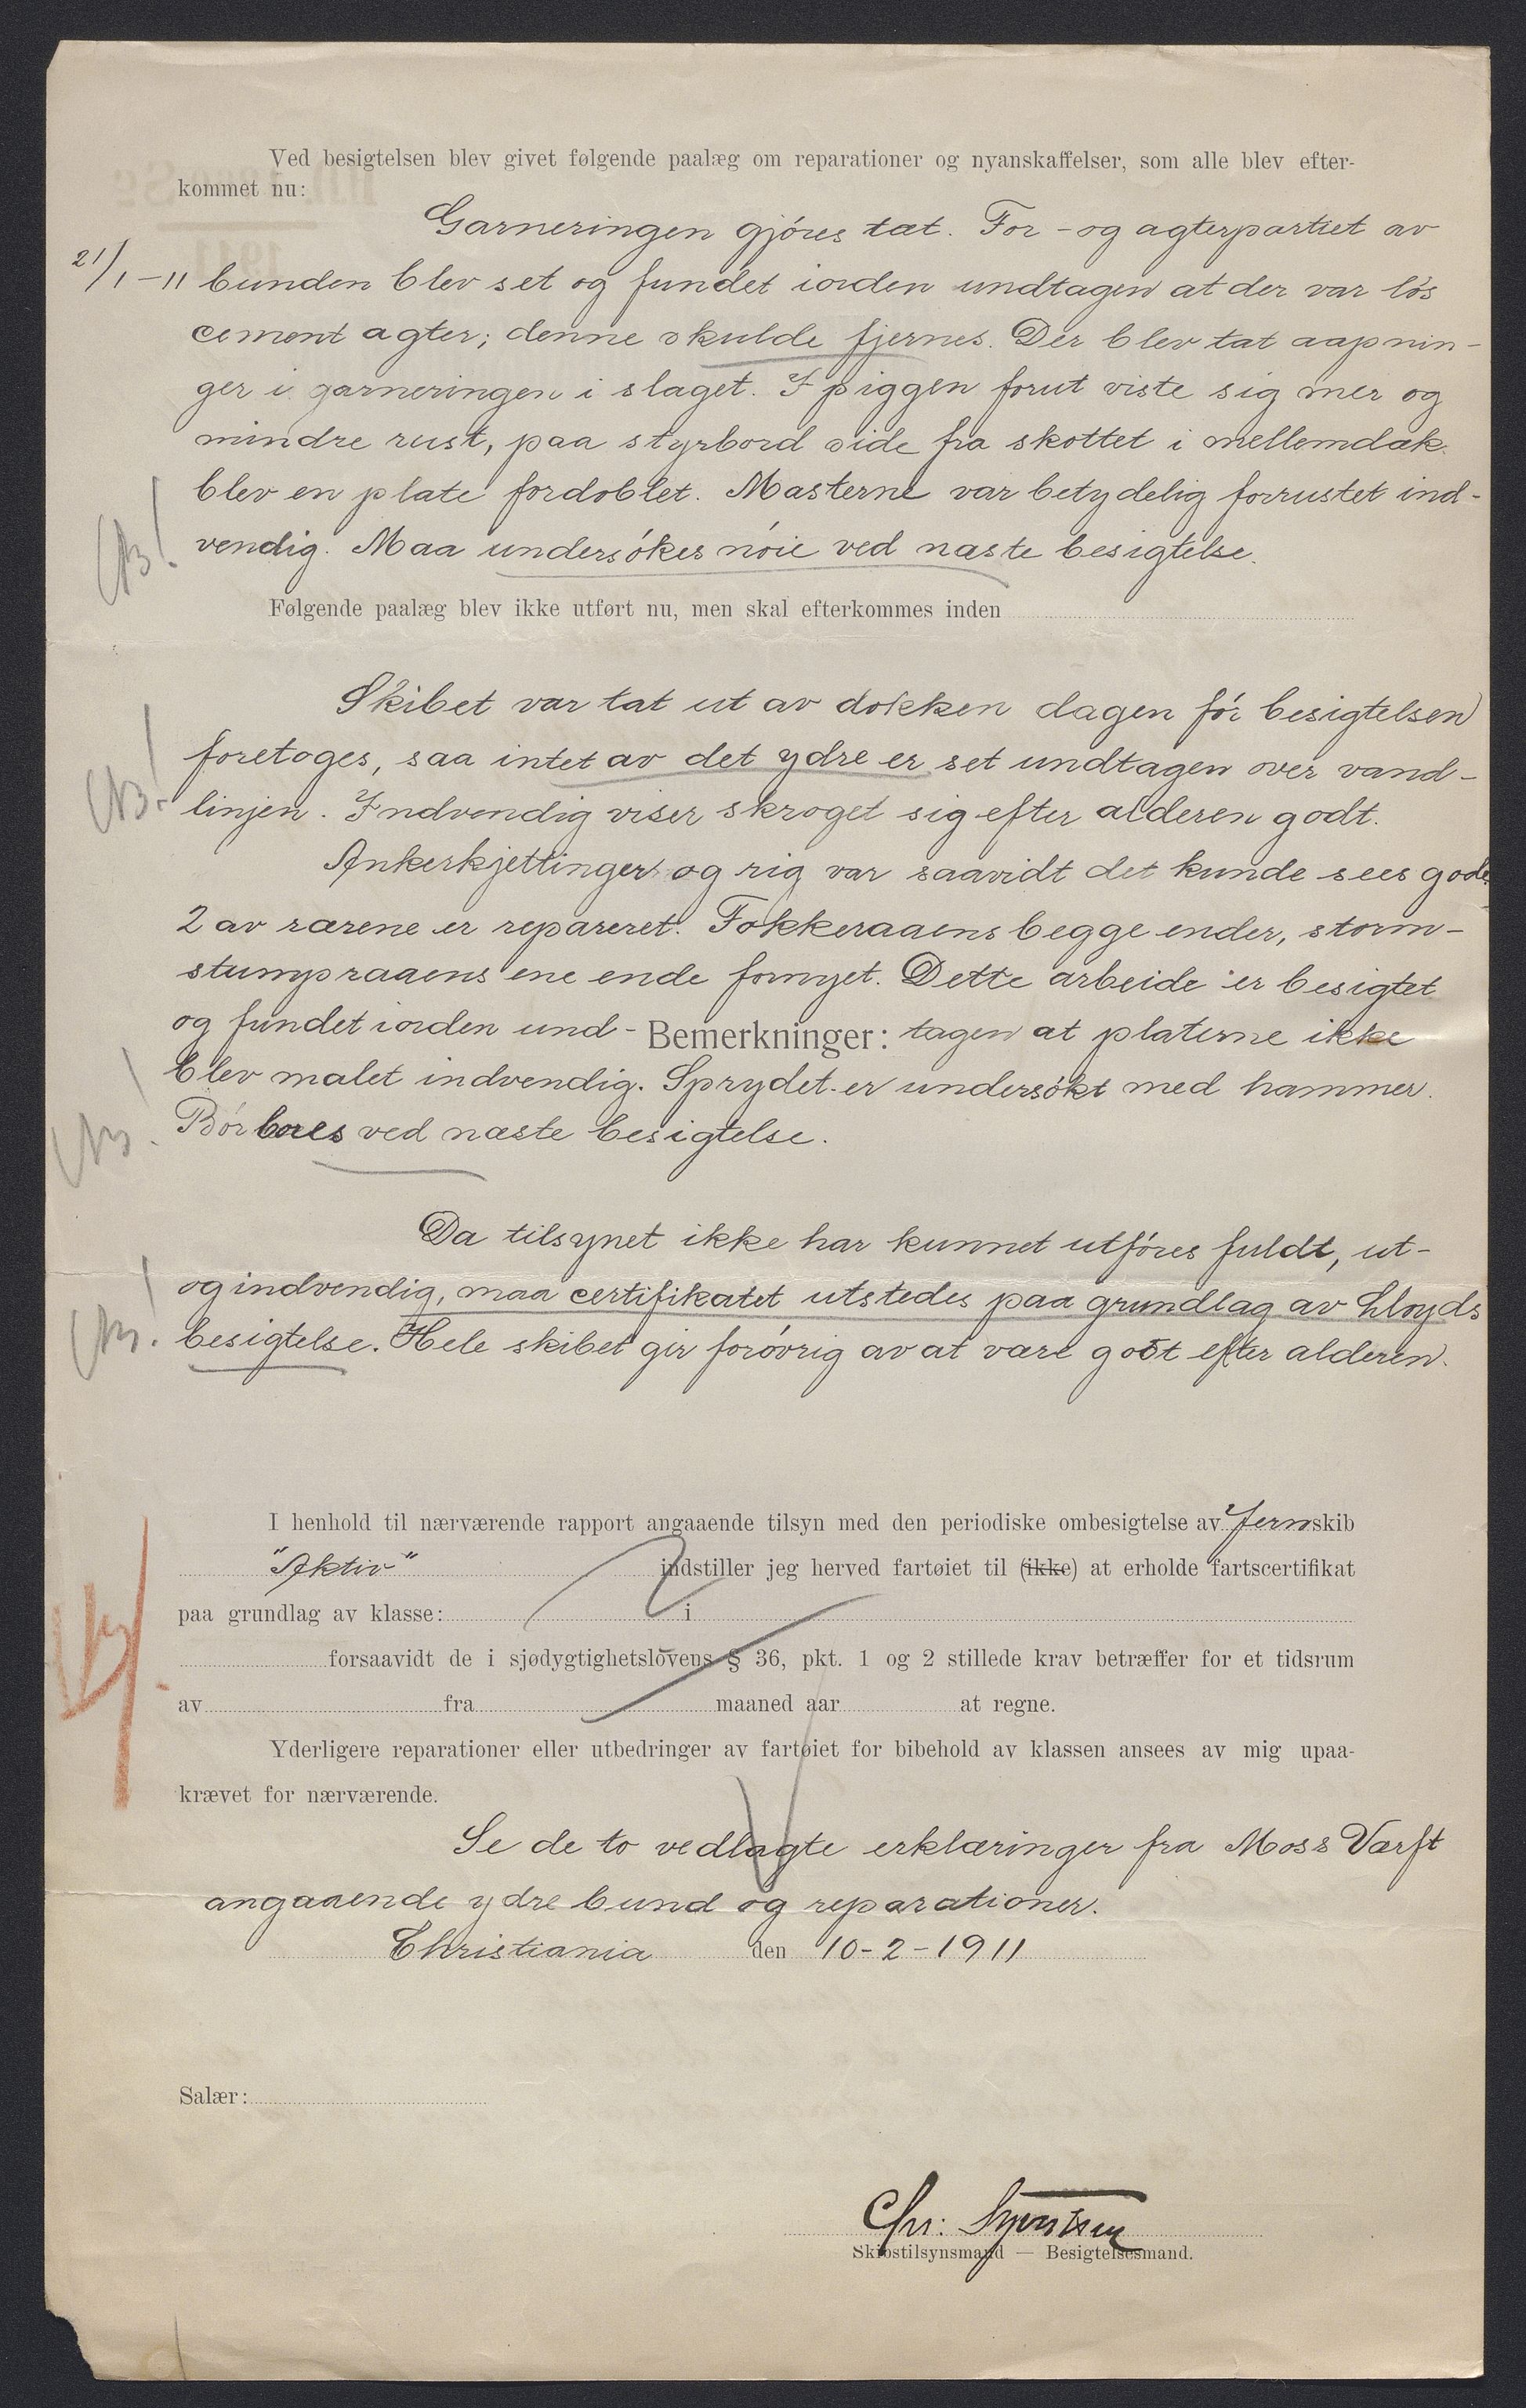 Ved besigtelsen blev givet følgende paalæg om reparationer og nyanskaffelser, som alle blev efter-
kommet nu:
Garneringen gjóres tæt. For- og agterpartiet av
21/1-11 bunden blev set og fundet iorden undtagen at der var lós
cement agter; denne skulde fjernes. Der blev tat aapnin-
ger i garneringen i slaget. I piggen forut viste sig mer og
mindre rust, paa styrbord side fra skottet i mellemdæk
blev en plate fordoblet. Masterne var betydelig forrustet ind-
NB! vendig. Maa undersókes nóie ved næste besigtelse.
Følgende paalæg blev ikke utført nu, men skal efterkommes inden
Skibet var tat ut av dokken dagen fór besigtelsen
foretoges, saa intet av det ydre er set undtagen over vand-
NB! linjen. Indvendig viser skroget sig efter alderen godt.
Ankerkjettinger og rig var saavidt det kunde sees gode.
2 av rærene er reparert. Fokkeraaens begge ender, storm-
stumpraaens ene ende fornyet. Dette arbeide er besigtet
og fundet iorden und- Bemerkninger: tagen at platerne ikke
blev malet indvendig. Sprydet er undersókt med hammer.
NB! Bór bores ved næste besigtelse.
Da tilsynet ikke har kunnet utfóres fuldt, ut-
og indvendig, maa certifikatet utstedes paa grundlag av Lloyds
NB! besigtelse. Hele skibet gir foróvrig av at være godt efter alderen.
I henhold til nærværende rapport angaaende tilsyn med den periodiske ombesigtelse av Jernskib
"Aktiv" indstiller jeg herved fartøiet til (ikke) at erholde fartscertifikat
paa grundlag av klasse: i
forsaavidt de i sjødygtighetslovens § 36, pkt. 1 og 2 stillede krav betræffer for et tidsrum
av fra maaned aar at regne.
Yderligere reparationer eller utbedringer av fartøiet for bibehold av klassen ansees av mig upaa-
krævet for nærværende.
Se de to vedlagte erklæringer fra Moss Værft
angaaende ydre bund og reparationer.
Christiania den 10-2-1911
Salær:
Chr.
Skibstilsynsmand — Besigtelsesmand.